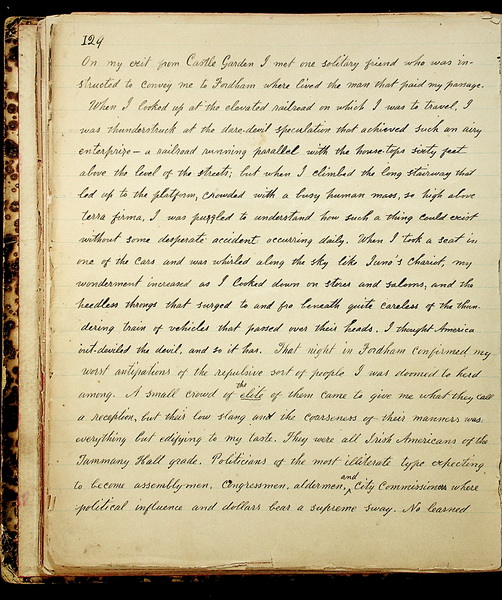 129
On my exit from Castle Garden I met one solitary friend who was in-
structed to convey me to Fordham where lived the man that paid my passage.
When I looked up at the elevated railroad on which I was to travel, I
was thunderstruck at the dare-devil speculation that achieved such an airy
enterprize – a railroad running parallel with the house-tops sixty feet
above the level of the streets; but when I climbed the long stairway that
led up to the platform, crowded with a busy human mass, so high above
terra firma, I was puzzled to understand how such a thing could exist
without some desperate accident occurring daily. When I took a seat in
one of the cars and was whirled along the sky like Iuno's Chariot, my
wonderment increased as I looked down on stores and saloons, and the
heedless throngs that surged to and fro beneath quite careless of the thun-
dering train of vehicles that passed over their heads. I thought America
out-deviled the devil, and so it has. That night in Fordham confirmed my
worst antipations of the repulsive sort of people I was doomed to herd
among. A small crowd of the elite of them came to give me what they call
a reception, but their low slang and the coarseness of their manners was
everything but edifying to my taste. They were all Irish Americans of the
Tammany Hall grade. Politicians of the most illiterate type expecting
to become assemblymen, Congressmen, aldermen, and City Commissioners where
political influence and dollars bear a supreme sway. No learned